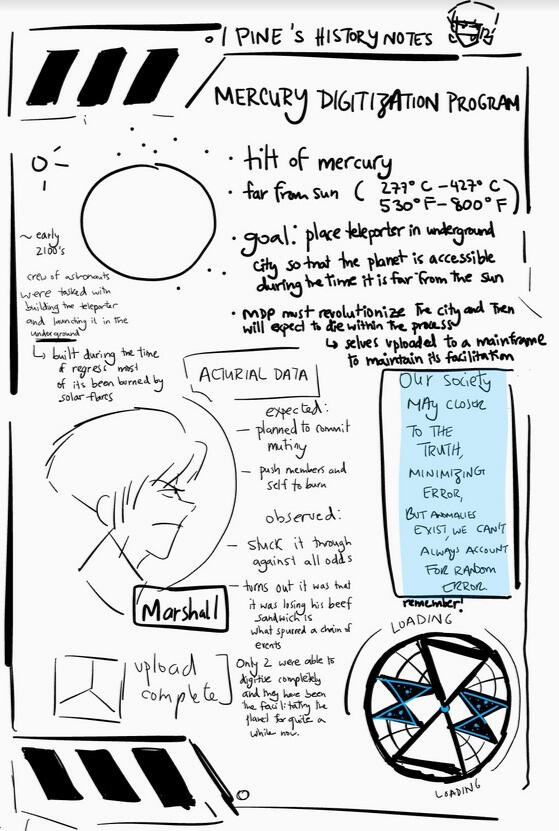 PINE'S HISTORY NOTES
MERCURY DIGITIZATION PROGRAM
• tilt of mercury
• far from sun ( 277° C - 427° C
530° F - 800° F )
• goal: place teleporter in underground
city so that the planet is accessible
during the time it is far from the sun
• MDP must revolutionize the city and then
will expect to die within the process
↳ selves uploaded to a mainframe
to maintain its facilitation
~ early
2100's
crew of astronauts
were tasked with
building the teleporter
and launching it in the
underground
↳ built during the time
of regress most
of its been burned by
solar flares
ACTURIAL DATA
expected:
– planned to commit
mutiny
– push members and
self to burn
observed:
– stuck it through
against all odds
– turns out it was that
it was losing his beef
sandwich is
what spurred a chain of
events
Marshall
OUR SOCIETY
MAY CLOSER
TO THE
TRUTH,
MINIMIZING
ERROR,
BUT ANOMALIES
EXIST, WE CAN'T
ALWAYS ACCOUNT
FOR RANDOM
ERROR.
remember!
upload
complete
Only 2 were able to
digitize completely
and they have been
the facilitating the
planet for quite a
while now.
LOADING
LOADING